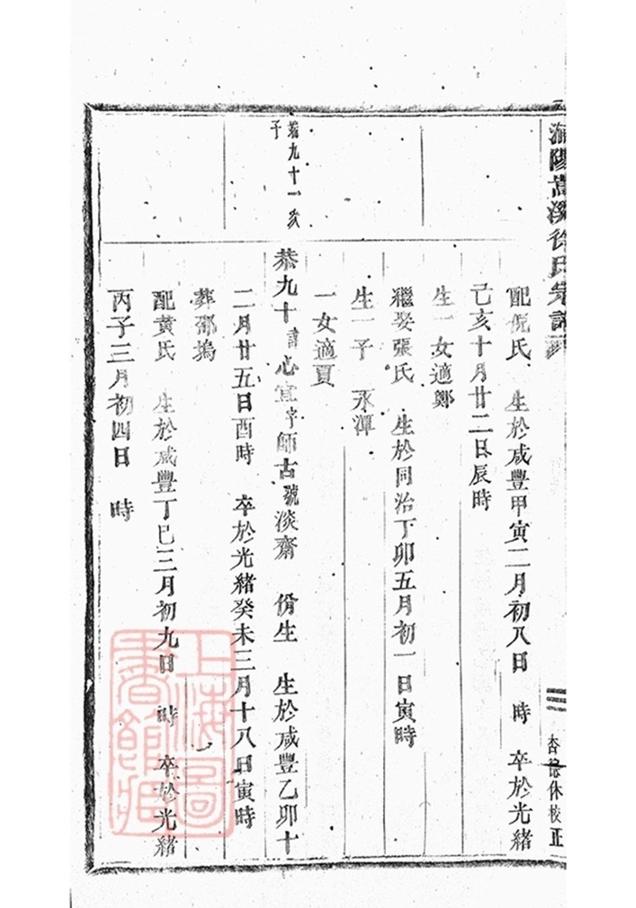 浦陽嵩溪徐氏宗譜
休校正
配倪氏 生於咸豐甲寅二月初八日 時 卒於光緒
己亥十月廿二日辰時
生一女適鄭
繼娶張氏 生於同治丁卯五月初一日寅時
生一子 永渾
一女適夏
恭九十一次
子
恭九十諱心宜字師古號淡齋 佾生 生於咸豐乙卯十
二月廿五日酉時 卒於光緒癸未三月十八日寅時
葬邵塢
配黃氏 生於咸豐丁巳三月初九日 時 卒於光緒
丙子三月初四日 時
上海圖
書館藏